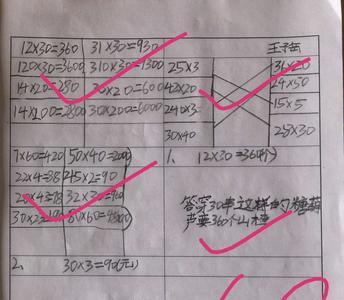 12×30=360 31×30=930 王子
120×30=3600 310×30=1300 25×3 36×20
14×20=280 30×20=600 42×20 24×50
14×200=2800 30×200=6000 240×3 15×5
30×40 25×30
7×60=420 50×40=2000 1. 12×30=360(个)
22×4=88 45×2=90
32×3
答穿30串这样的糖葫
芦要360个山楂
60×60=
2. 30×3=90(元)